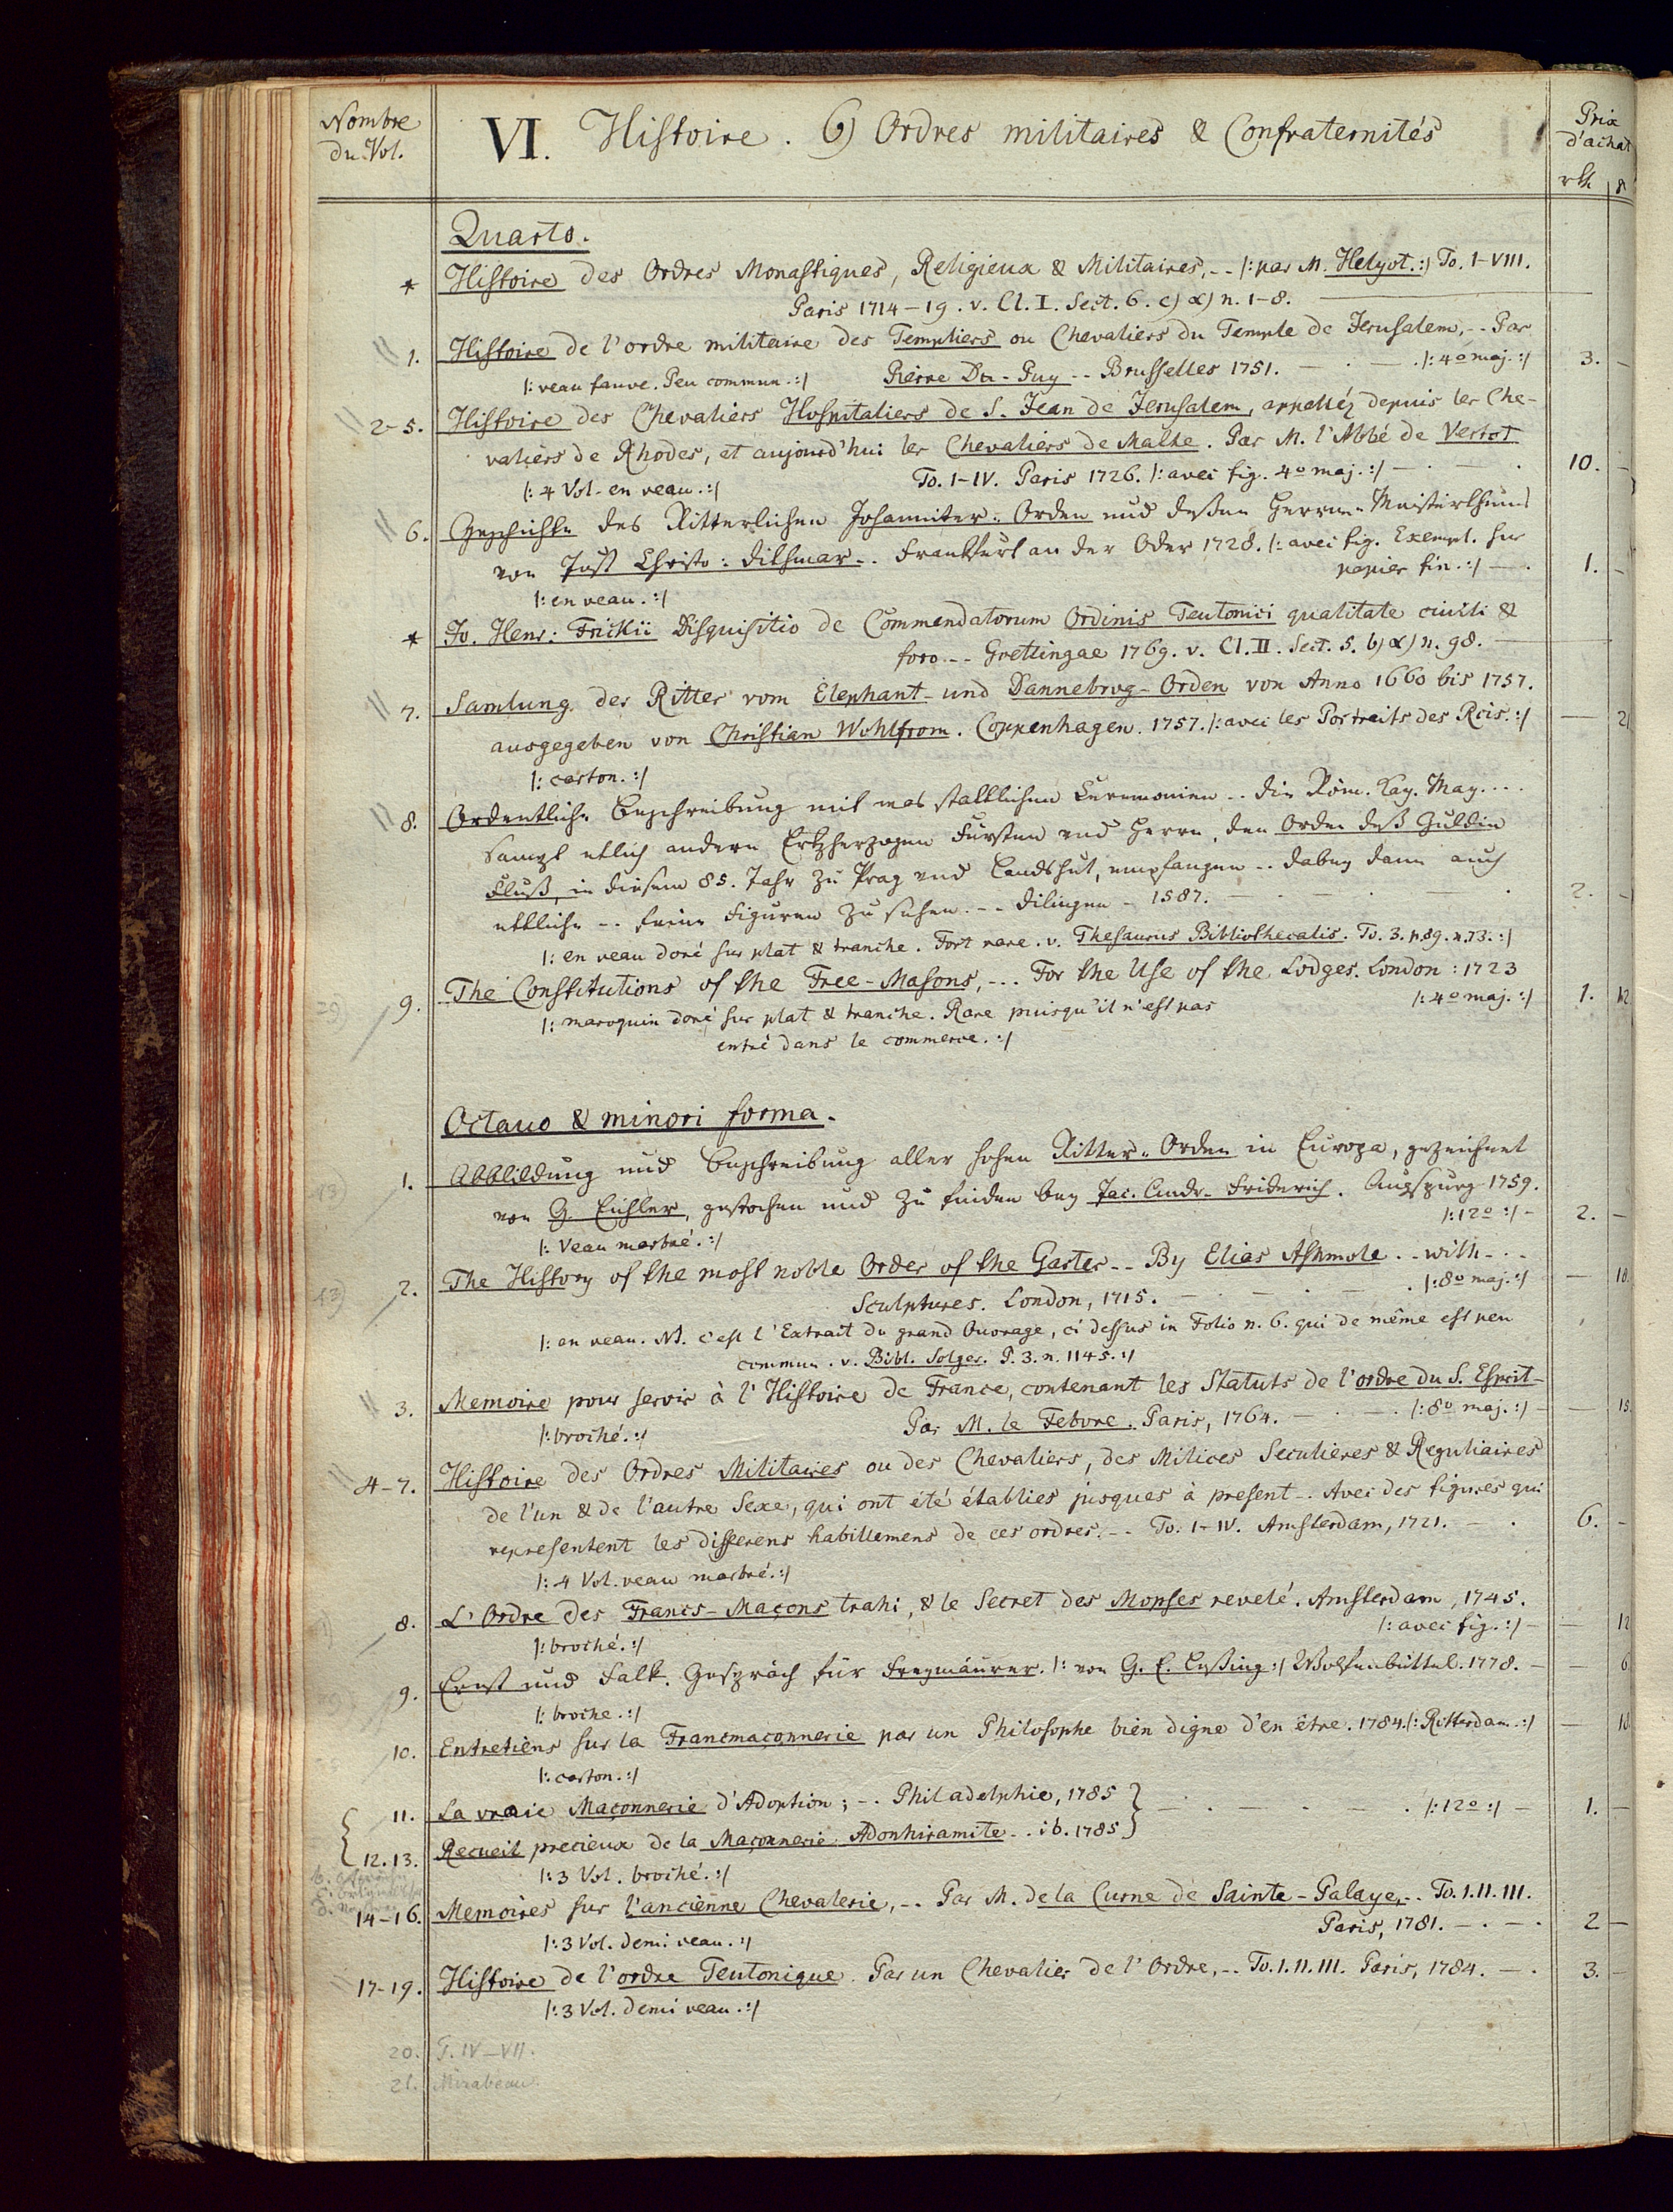 Nombre
du Vol.
VI. Histoire. 6) Ordres militaires & Confraternités
Prix
d'achat
rth
Quarto.
* Histoire des Ordres Monastiques, Religieux & Militaires, -- /: par M. Helyot. :/ To. I-VIII.
Paris 1714-19. v. Cl. I. Sect. 6. c) α) n. 1-8.
1. Histoire de l'ordre militaire des Templiers ou Chevaliers du Temple de Jerusalem, -- Par
/: veau fauve. Peu commun. :/ Pierre Du-Puy -- Brusselles 1751. — . — . /: 4o maj. :/ 3. —
2-5. Histoire des Chevaliers Hospitaliers de S. Jean de Jerusalem, appelléz depuis les Che-
valiers de Rhodes, et aujourd'hui les Chevaliers de Malthe. Par M. l'Abbé de Vertot
/: 4 Vol. en veau. :/ To. I-IV. Paris 1726. /: avec fig. 4o maj. :/ — . — . 10. —
6. Geschichte des Ritterlichen Johanniter-Orden und deßen Herren-Meisterthums
von Just Christo: Dithmar -. Frankfurt an der Oder 1728. /: avec fig. Exempl. sur
papier fin. :/ — . 1. —
/: en veau. :/
* Jo. Henr: Frikii Disquisitio de Commendatorum Ordinis Teutonici qualitate civili &
foro -- Goettingae 1769. v. Cl. II. Sect. 5. b) α) n. 98. —
7. Samlung der Ritter vom Elephant- und Dannebrog-Orden von Anno 1660 bis 1757.
ausgegeben von Christian Wohlfrom. Coppenhagen. 1757. /: avec les Portraits des Rois. :/ — 21
/: carton. :/
8. Ordentliche Beschreibung mit was stattlichen Ceremonien -- die Röm. Kay. May....
sampt etlich andern Ertzherzogen Fürsten und Herrn, den Orden deß Guldin
Fluß, in diesem 85. Jahr zu Prag und Landshut, empfangen -- dabey dann auch
ettliche -- feine Figuren zu sehen. -- Dilingen - 1587. — 2. —
/: en veau doré sur plat & tranche. Fort rare. v. Thesaurus Bibliothecalis. To. 3. p. 89. n. 73. :/
9. The Constitutions of the Free-Masons, --- For the Use of the Lodges. London: 1723
/: 4o maj. :/ 1. 12
/: maroquin doré sur plat & tranche. Rare puisqu'il n'est pas
entré dans le commerce. :/
Octavo & minori forma.
1. Abbildung und Beschreibung aller hohen Ritter-Orden in Europa, gezeichnet
von G. Eichler, gestochen und zu finden bey Jac. Andr. Friderich. Augspurg 1759.
/: 12o :/ - 2. —
/: Veau marbré. :/
2. The History of the most noble Order of the Garter -- By Elias Ashmole -- with - . .
Sculptures. London, 1715. — . — . — . /: 8o maj. :/ — 18.
/: en veau. NB. c'est l'Extrait du grand Ouvrage, ci dessus in Folio n. 6. qui de même est peu
commun. v. Bibl. Solger. P. 3. n. 1145. :/
3. Memoire pour servir à l'Histoire de France, contenant les Statuts de l'ordre du S. Esprit -
/: broché. :/ Par M. le Febvre. Paris, 1764. — . — . /: 8o maj. :/ — 15.
4-7. Histoire des Ordres Militaires ou des Chevaliers, des Milices Seculieres & Reguliaires
de l'un & de l'autre Sexe, qui ont été établies jusques à present -. Avec des figures qui
representent les differens habillemens de ces ordres. -- To. I-IV. Amsterdam, 1721. — . 6. —
/: 4 Vol. veau marbré. :/
8. L'Ordre des Francs-Maçons trahi, & le Secret des Mopses revelé. Amsterdam, 1745.
/: avec fig. :/ — 12
/: broché. :/
9. Ernst und Falk. Gespräch für Freymäurer. /: von G. E. Leßing :/ Wolfenbüttel. 1778. — — 6
/: broche. :/
10. Entretiens sur la Francmaçonnerie par un Philosophe bien digne d'en être. 1784. /: Rotterdam. :/ — 18
/: carton. :/
11. La vraie Maçonnerie d'Adoption; -. Philadelphie, 1785
— . — . — . /: 12o :/ — 1. —
12. 13. Recueil precieux de la Maçonnerie Adonhiramite -. ib. 1785
/: 3 Vol. broché. :/
14-16. Memoires sur l'ancienne Chevalerie, -. Par M. de la Curne de Sainte-Palaye, -. To. I. II. III.
Paris, 1781. — . — . 2 —
/: 3 Vol. demi veau. :/
17-19. Histoire de l'ordre Teutonique. Par un Chevalier de l'Ordre, -. To. I. II. III. Paris, 1784. — . 3. —
/: 3 Vol. demi veau. :/
20. T. IV-VII.
21. Mirabeau.